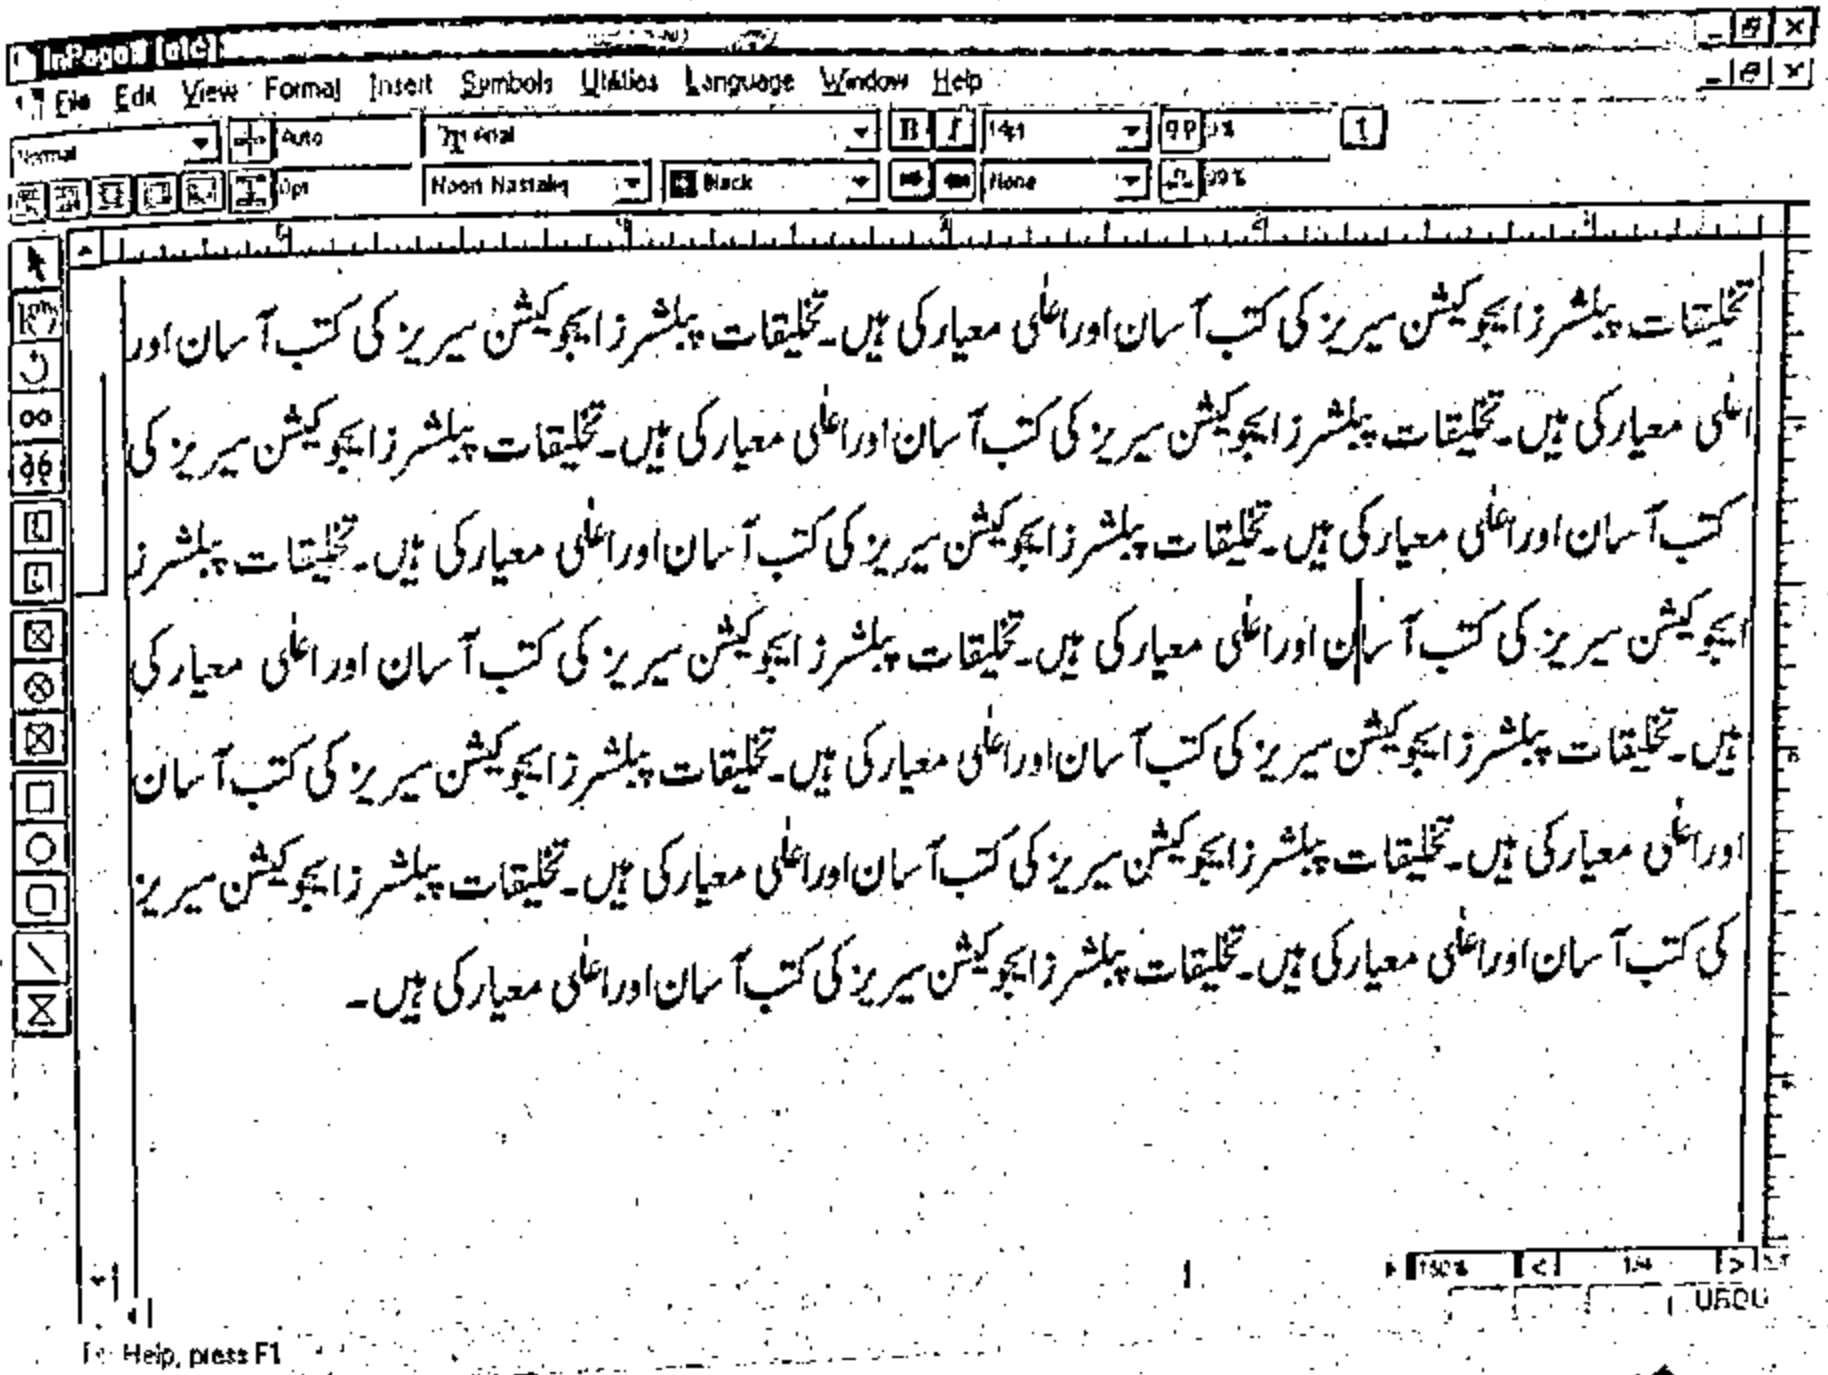 InPage® [etc]
File Edit View Format Insert Symbols Utilities Language Window Help
Normal Auto Arial B I 14pt 0%
0pt Noori Nastaliq Black None 99%
تخلیقات پبلشرز ایجوکیشن سیریز کی کتب آسان اور اعلٰی معیار کی ہیں۔ تخلیقات پبلشرز ایجوکیشن سیریز کی کتب آسان اور
اعلٰی معیار کی ہیں۔ تخلیقات پبلشرز ایجوکیشن سیریز کی کتب آسان اور اعلٰی معیار کی ہیں۔ تخلیقات پبلشرز ایجوکیشن سیریز کی
کتب آسان اور اعلٰی معیار کی ہیں۔ تخلیقات پبلشرز ایجوکیشن سیریز کی کتب آسان اور اعلٰی معیار کی ہیں۔ تخلیقات پبلشرز
ایجوکیشن سیریز کی کتب آسان اور اعلٰی معیار کی ہیں۔ تخلیقات پبلشرز ایجوکیشن سیریز کی کتب آسان اور اعلٰی معیار کی
ہیں۔ تخلیقات پبلشرز ایجوکیشن سیریز کی کتب آسان اور اعلٰی معیار کی ہیں۔ تخلیقات پبلشرز ایجوکیشن سیریز کی کتب آسان
اور اعلٰی معیار کی ہیں۔ تخلیقات پبلشرز ایجوکیشن سیریز کی کتب آسان اور اعلٰی معیار کی ہیں۔ تخلیقات پبلشرز ایجوکیشن سیریز
کی کتب آسان اور اعلٰی معیار کی ہیں۔ تخلیقات پبلشرز ایجوکیشن سیریز کی کتب آسان اور اعلٰی معیار کی ہیں۔
150% < >
URDU
For Help, press F1